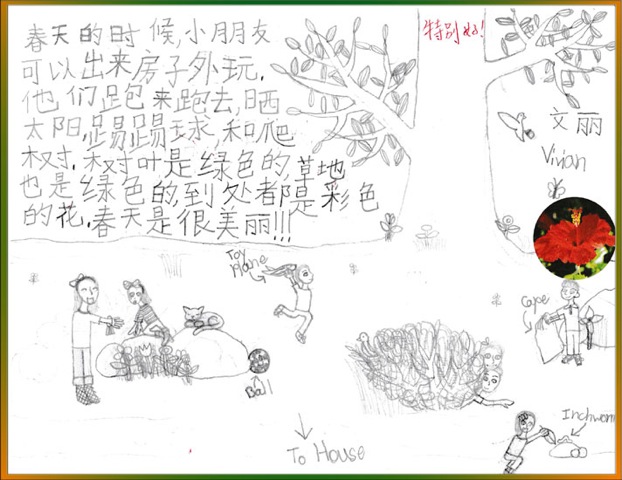 春天的时候,小朋友
可以出来房子外玩.
他们跑来跑去,晒
太阳,踢踢球,和爬
树.树叶是绿色的,草地
也是绿色的,到处都是彩色
的花.春天是很美丽!!!
特别好!
文丽
Vivian
Toy
Plane
Cape
Ball
Inchworm
To House